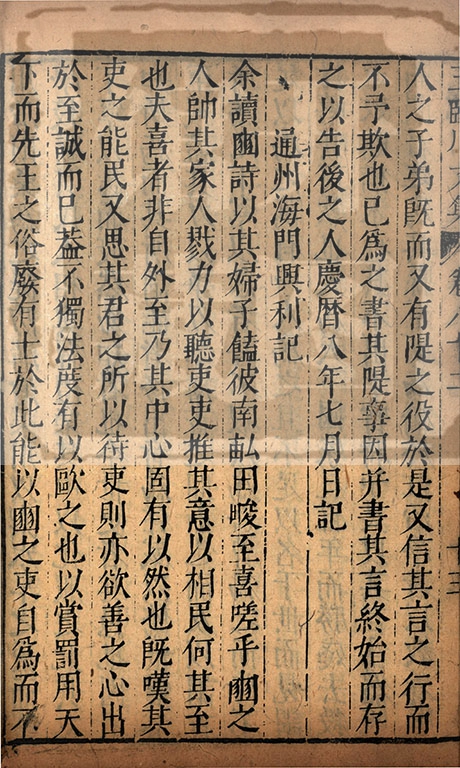 王臨川文集 卷八十二 十三
人之子弟既而又有隄之役於是又信其言之行而
不予欺也已爲之書其隄事因并書其言終始而存
之以告後之人慶曆八年七月日記
通州海門興利記
余讀豳詩以其婦子饁彼南畝田畯至喜嗟乎豳之
人帥其家人戮力以聽吏吏推其意以相民何其至
也夫喜者非自外至乃其中心固有以然也既嘆其
吏之能民又思其君之所以待吏則亦欲善之心出
於至誠而已葢不獨法度有以歐之也以賞罰用天
下而先王之俗廢有士於此能以豳之吏自爲而不